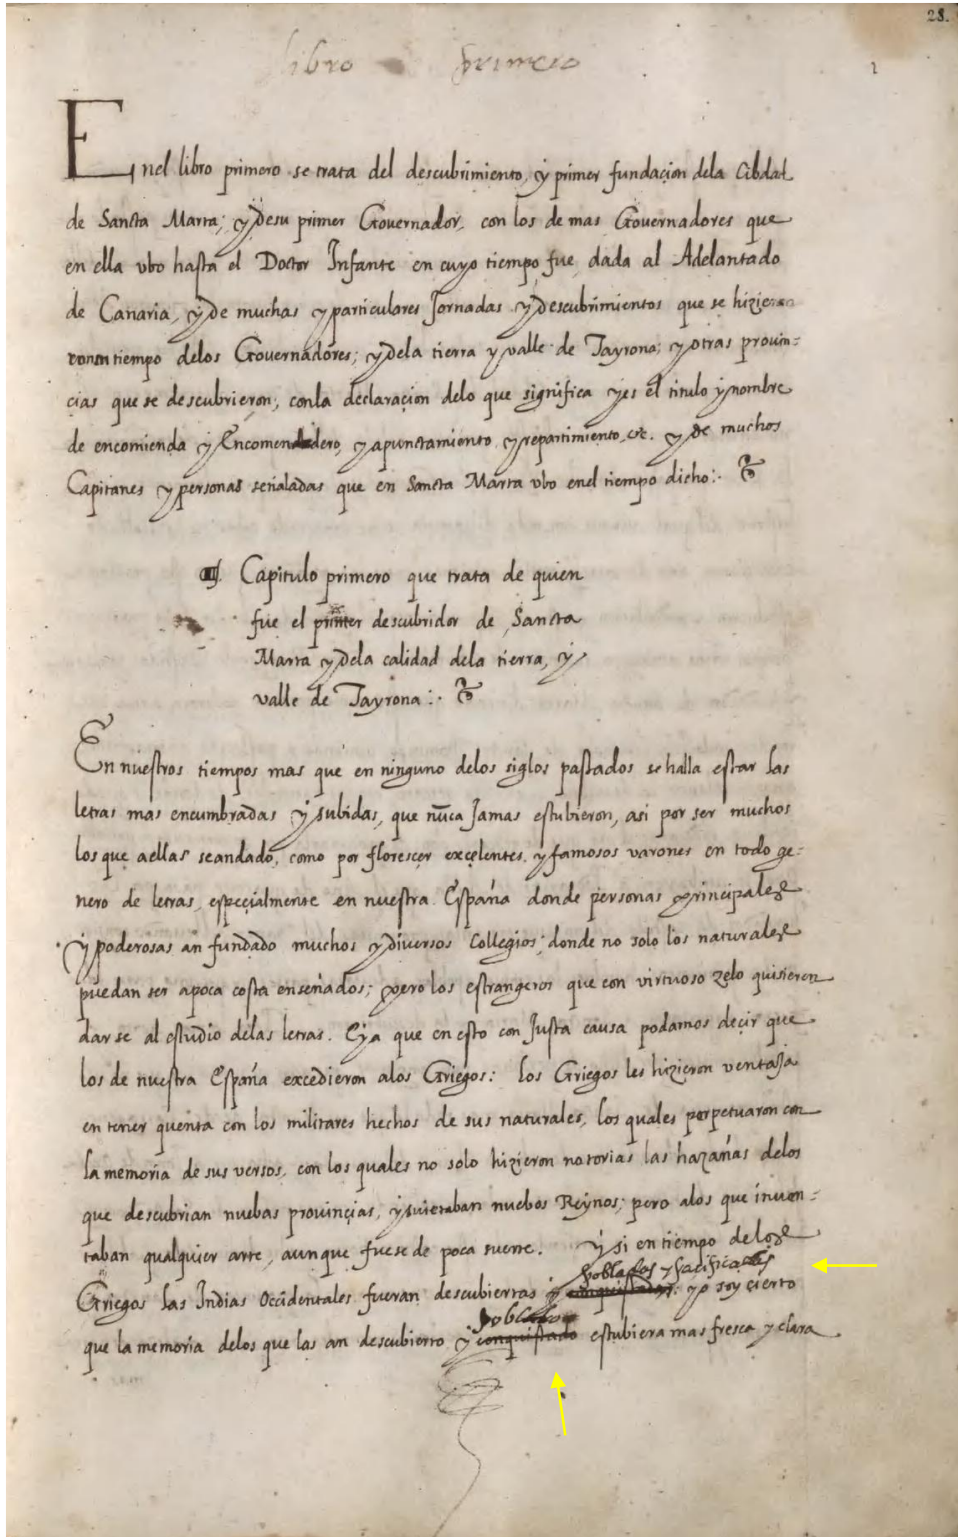 28.
libro primero
1
En el libro primero se trata del descubrimiento, y primer fundaçion dela Cibdad
de Sancta Marta; y de su primer Governador, con los de mas Governadores que
en ella vbo hasta el Doctor Infante en cuyo tiempo fue dada al Adelantado
de Canaria, y de muchas y particulares Jornadas y descubrimientos que se hizieron
tiempo delos Governadores; y dela tierra y valle de Tayrona; y otras provin=
çias que se descubrieron; conla declaraçion delo que significa y es el titulo y nombre
de encomienda y Encomendero, y apunctamiento y repartimiento etc. y de muchos
Capitanes y personas señaladas que en Sancta Marta vbo enel tiempo dicho:·
Capitulo primero que trata de quien
fue el primer descubridor de Sancta
Marta y dela calidad dela tierra, y
valle de Tayrona:·
En nuestros tiempos mas que en ninguno delos siglos passados se halla estar las
letras mas encumbradas y subidas, que nūca Jamas estubieron, asi por ser muchos
los que aellas seandado, como por floresçer exçelentes, y famosos varones en todo ge=
nero de letras, espeçialmente en nuestra España donde personas prinçipales
y poderosas an fundado muchos y diversos Collegios; donde no solo los naturales
puedan ser apoca costa enseñados; pero los estrangeros que con virtuoso zelo quisieren
darse al estudio delas letras. Eya que en esto con Justa causa podamos deçir que
los de nuestra España excedieron alos Griegos: los Griegos les hizieron ventaJa
en tener quenta con los militares hechos de sus naturales, los quales perpetuaron con
la memoria de sus versos, con los quales no solo hizieron notorias las hazañas delos
que descubrian nuebas provinçias, y suietaban nuebos Reynos; pero alos que inven=
taban qualquier arte, aunque fuese de poca suerte. Y si en tiempo delos
poblados y paçificadas
Griegos las Indias Occidentales fueran descubiertas y conquistadas. yo soy çierto
poblado
que la memoria delos que las an descubierto y conquistado estubiera mas fresca y clara